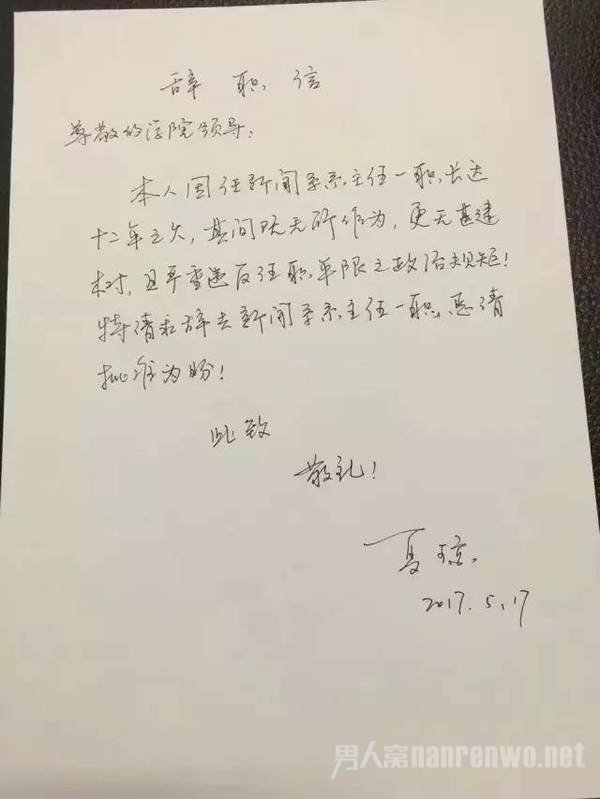 辞职信
尊敬的学院领导：
本人因任新闻学系系主任一职长达
十二年之久，其间既无所作为，更无甚建
树，且严重违反任职年限之政治规矩！
特请求辞去新闻学系系主任一职，恳请
批准为盼！
此致
敬礼！
夏琼
2017.5.17
男人窝nanrenwo.net